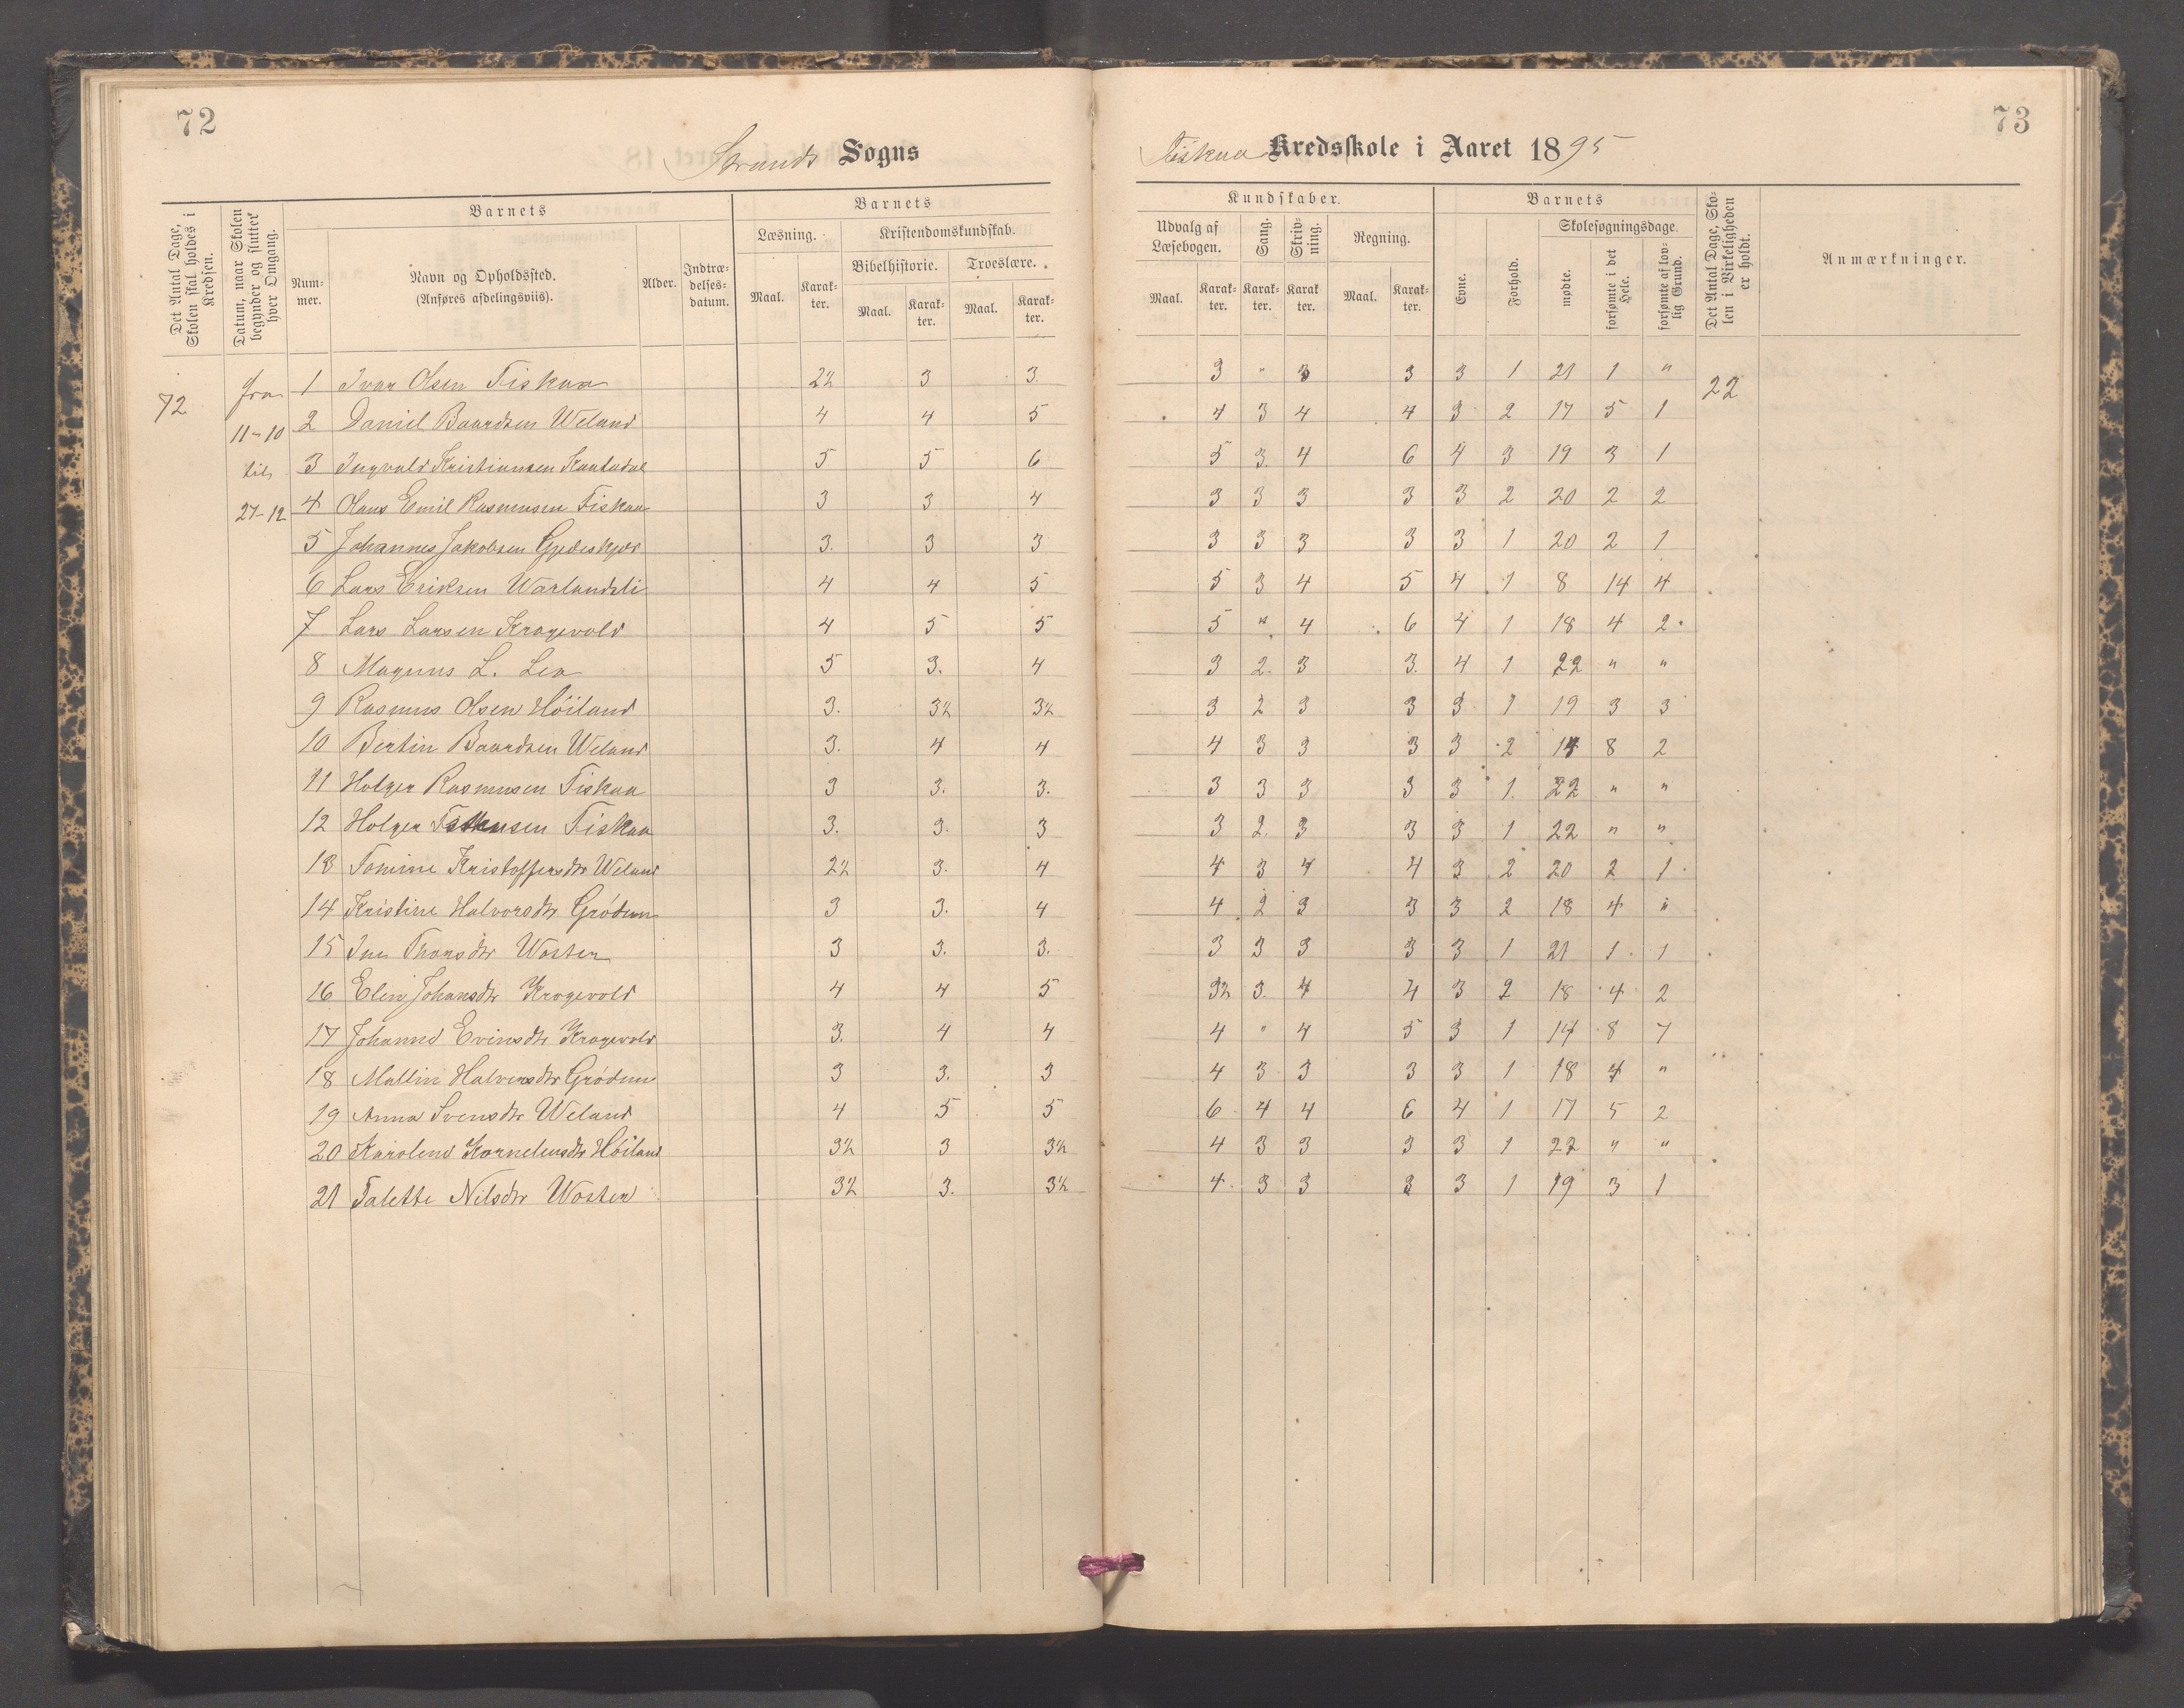 72
Strands Sogns
Det Antal Dage, Skolen skal holdes i Kredsen.
Datum, naar Skolen begynder og slutter hver Omgang.
Barnets
Num-mer.
Navn og Opholdssted.
(Anføres afdelingsviis).
Alder.
Indtræ-delses-datum.
Barnets
Læsning.
Kristendomskundskab.
Bibelhistorie.
Troeslære.
Maal.
Karak-ter.
Maal.
Karak-ter.
Maal.
Karak-ter.
72 fra 1 Ivar Olsen Fiskaa 2½ 3 3.
11-10 2 Daniel Baardsen Weland 4 4 5
til 3 Ingvald Kristiansen 5 5 6
27-12 4 Olaus Emil Rasmussen Fiskaa 3 3 4
5 Johannes Jakobsen 3. 3 3
6 Lars Eriksen Warlandsli 4 4 5
7 Lars Larsen Kragevold 4 5 5
8 Magnus L. Lea 5 3. 4
9 Rasmus Olsen Höiland 3. 3½ 3½
10 Bertin Baardsen Weland 3. 4 4
11 Holger Rasmussen Fiskaa 3 3. 3.
12 Holger Fiskaa 3. 3. 3
13 Tomine Kristoffersdtr Weland 2½ 3. 4
14 Kristine Halvorsdtr Grödem 3 3. 4
15 Ine Thorsdtr Wosten 3 3. 3.
16 Elin Johansdtr Kragevold 4 4 5
17 Johanne Evinsdtr Kragevold 3. 4 4
18 Mallin Halvorsdtr Grödem 3 3. 3
19 Anna Svensdtr Weland 4 5 5
20 Karolene Korneliusdtr Höiland 3½ 3 3½
21 Talette Nilsdtr Wosten 3½ 3. 3½
73
Fiskaa Kredsskole i Aaret 1895
Kundskaber.
Udvalg af Læsebogen.
Sang.
Skriv-ning.
Regning.
Maal.
Karak-ter.
Karak-ter.
Karak ter.
Maal.
Karak-ter.
Barnets
Evne.
Forhold.
Skolesøgningsdage.
mødte.
forsømte i det Hele.
forsømte af lov-lig Grund.
Det Antal Dage, Sko-len i Virkeligheden er holdt.
Anmærkninger.
3 " 3 3 3 1 21 1 " 22
4 3 4 4 3 2 17 5 1
5 3. 4 6 4 3 19 3 1
3 3 3 3 3 2 20 2 2
3 3 3 3 3 1 20 2 1
5 3 4 5 4 1 8 14 4
5 " 4 6 4 1 18 4 2
3 2. 3 3. 4 1 22 " "
3 2 3 3 3 1 19 3 3
4 3 3 3 3 2 14 8 2
3 3 3 3 3 1 22 " "
3 2. 3 3 3 1 22 " "
4 3 4 4 3 2 20 2 1
4 2 3 3 3 2 18 4 "
3 3 3 3 3 1 21 1 1
3½ 3. 4 4 3 2 18 4 2
4 " 4 5 3 1 14 8 7
4 3 3 3 3 1 18 4 "
6 4 4 6 4 1 17 5 2
4 3 3 3 3 1 22 " "
4 3 3 3 3 1 19 3 1